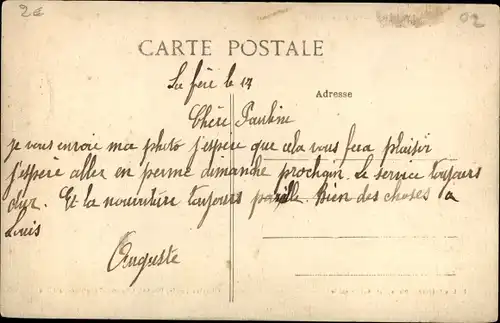 2e
92
CARTE POSTALE
La fère le 14
Adresse
Chère Pauline
je vous envoie ma photo j'espère que cela vous fera plaisir
j'espère aller en perme dimanche prochain. Le service toujours
dur. Et la nourriture toujours pareille. Bien des choses a
Louis
Auguste